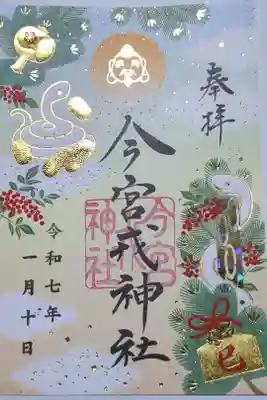 奉拝
今宮戎神社
今宮
神社
令和七年
一月十日
巳